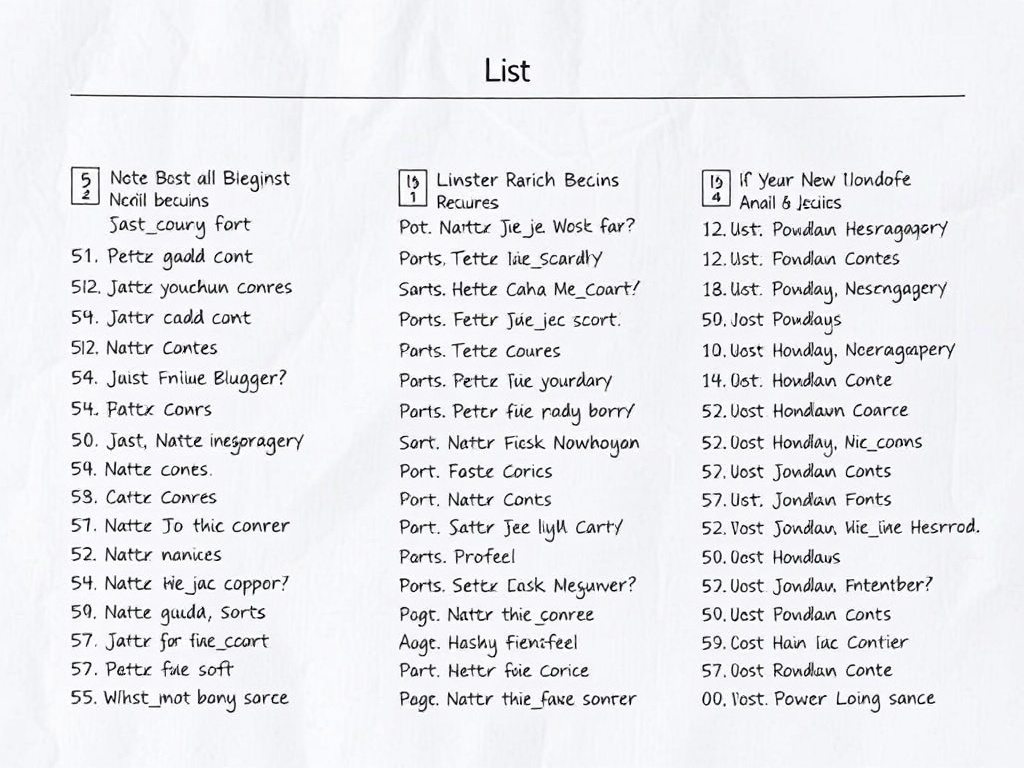 List
5 2 Note Bost all Bleginst
Ncīil becuins
Sast_coury fort
51. Pettx gadd cont
512. Jattx youchun conres
54. Jattr cadd cont
512. Nattr Contes
54. Juist Blugger?
54. Pattx Conrs
50. Jast, Natte
54. Natte cones.
53. Cattx Conres
57. Natte Jo thic conrer
52. Nattr nanices
54. Natte We_jac coppor?
59. Natte guda, Sorts
57. Jattr for fine_ccort
57. Pettx fule soft
55. Whst_mot bony sarce
Linster Rarich Becins
Recures
Pot. Nattx Jie_je Wosk far?
Ports. Tette
Sarts. Hette Caha Me_Coart!
Ports. Fettr Jue_jec scort.
Parts. Tette Coures
Parts. Pette yourdary
Ports. Pettr fue rady borry
Sart. Nattr Ficsk Nowhoyan
Port. Faste Corics
Port. Nattr Conts
Port. Sattr Jee Carty
Parts. Profeel
Ports. Settx Megunver?
Pogt. Nattr thie_conree
Aogt. Hashy
Part. Hettr fuie Corice
Pagc. Nattr thie_fave sonrer
If Year New
Anail & Jeciics
12. Ust. Powdlan Hesragagory
12. Ust. Fondlan Contes
13. Ust. Powdlay, Nesengagery
50. Jost Powdlays
10. Uost Howdlay, Nceragapery
14. Ost. Howdlan Conte
52. Uost Hondlawn Coarce
52. Oost Hondlay, Nic_conns
52. Uost Jondlan Conts
57. Ust. Jondlan Fonts
52. Vost Jondlan, Hesrrod.
50. Oest Hovdlaus
52. Uost Jondlan, Fntentber?
50. Uost Povdlan Conts
59. Cost Hain Contier
57. Oost Rovdlan Conte
00. Vost. Power Loing sance